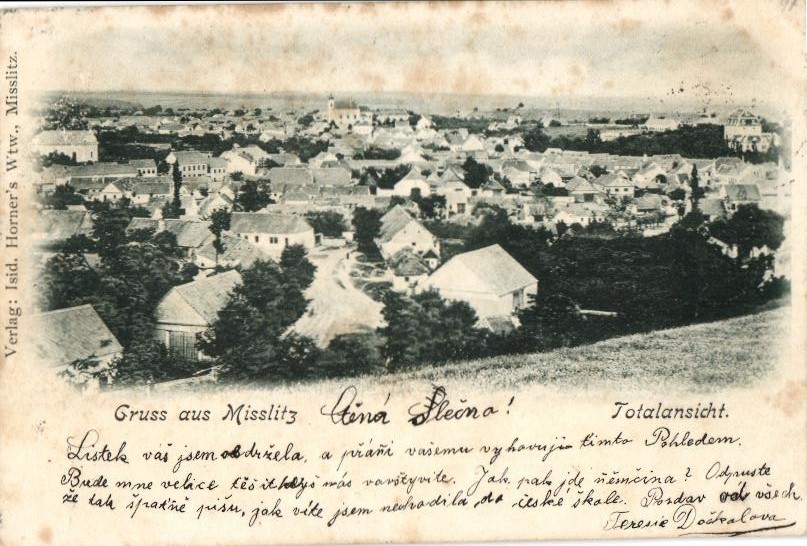 Verlag: Isid. Horner's Wtw., Misslitz.
Gruss aus Misslitz Ctěná Slečno! Totalansicht.
Lístek váš jsem obdržela, a přáňi vašemu vyhovuji tímto Pohledem.
Bude mne velice těšit když nás navštyvíte. Jak pak jde ňemčina? Odpuste
že tak špatňe pišu, jak víte jsem nechodila do české škole. Pozdav od všech
Teresie Dočkalova